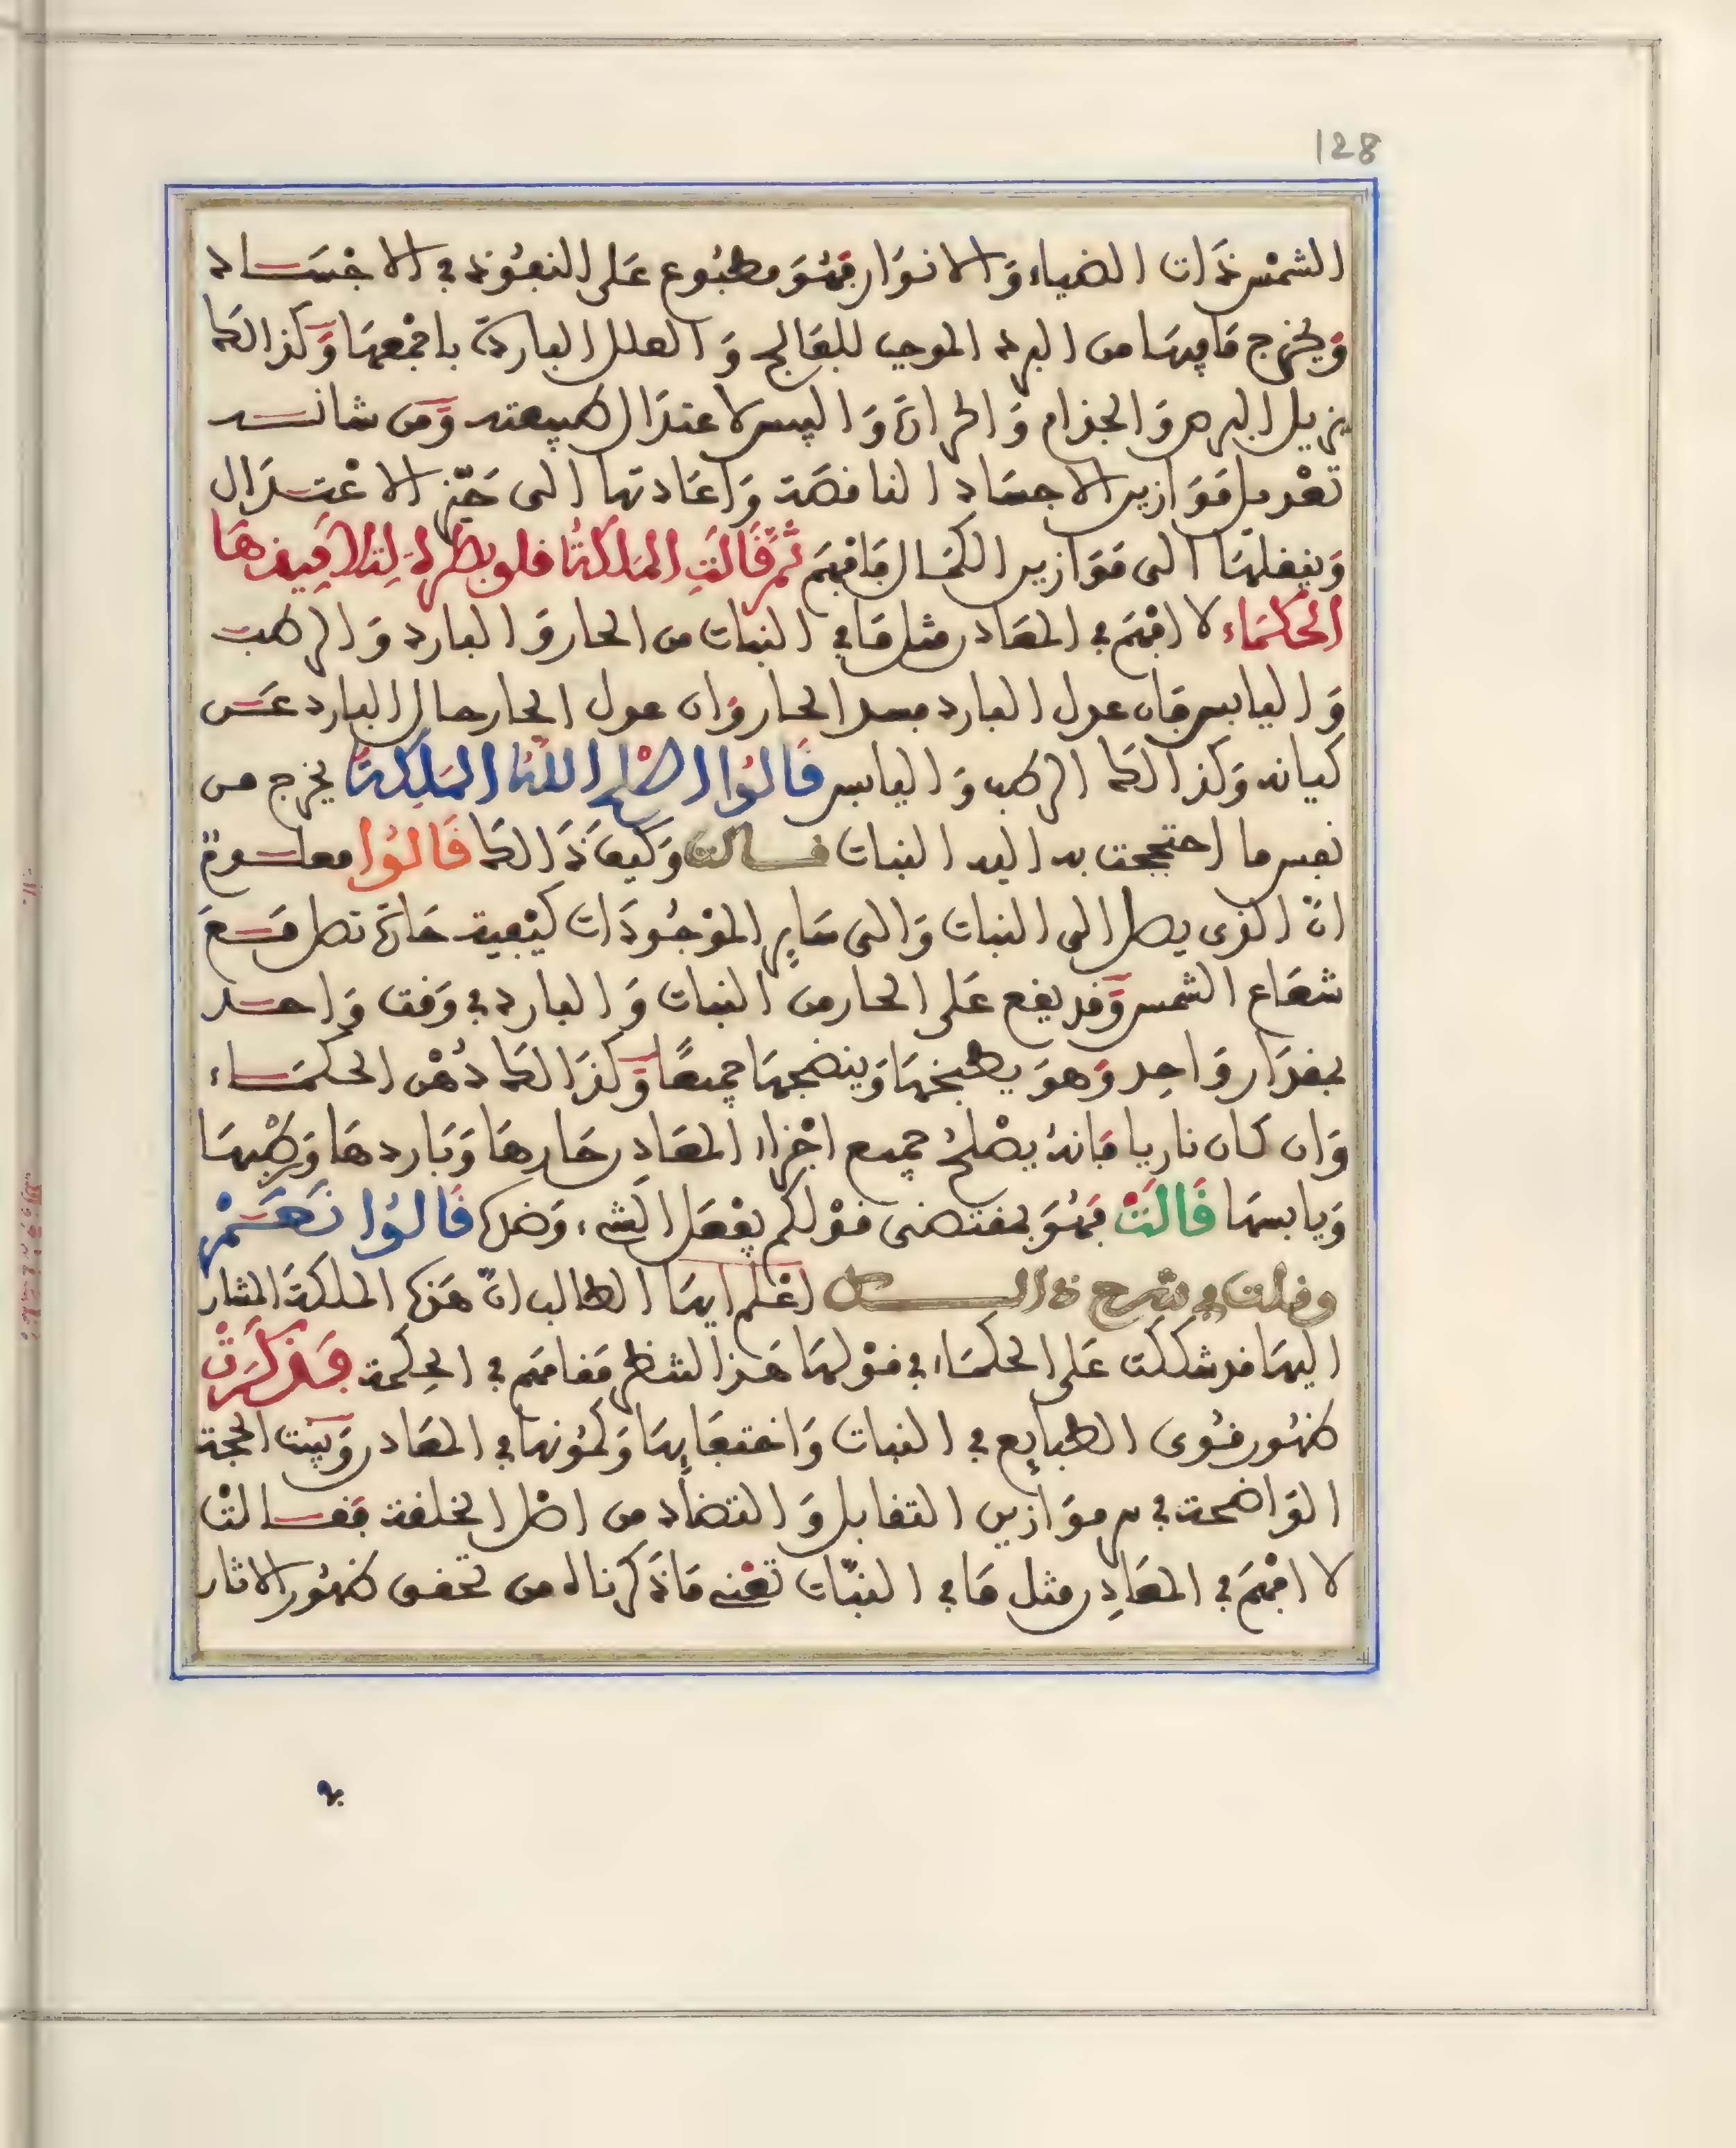 128
الشمس ذات الضياء والانوار فهو مطبوع على النفوذ في الاجساد
ويخرج ما فيها من البرد الموجب للفالج والعلل الباردة باجمعها وكذالك
يزيل البرص والجذام والحرارة واليبس لاعتدال طبيعته ومن شانه
تعديل موازين الاجساد الناقصة واعادتها الى حيّز الاعتدال
وينقلها الى موازين الكمال فافهم ثم قالت الملكة
الحكماء لا افهم في المعادن مثل ما في النبات من الحار والبارد والرطب
واليابس فان البارد الحار وان الحار البارد عن
كيانه وكذالك الرطب واليابس قالوا اصلح الله الملكة يخرج من
نفس ما احتججت به اليه النبات قالت وكيف ذالك قالوا معلوم
انّ الذي يصل الى النبات والى ساير الموجودات كيفية حارة تصل مع
شعاع الشمس وقد يقع على الحار من النبات والبارد في وقت واحد
بمقدار واحد وهو يطبخها وينضجها جميعًا وكذالك دهن الحكماء
وان كان ناريا فانه يصلح جميع اجزاء المعادن حارها وباردها ورطبها
ويابسها قالت فهو بمقتضى قولكم يفعل الشيء وضدك قالوا نعم
وقلت في شرح ذالك اعلم ايها الطالب انّ هذه الملكة المشار
اليها قد شككت على الحكماء في قولها هذا لتنظر مقامهم في الحكمة فذكرت
ظهور قوى الطبايع في النبات واختفايها وكمونها في المعادن وبينت الحجة
الواضحة في موازين التقابل والتضاد من اصل الخلقة فقالت
لا افهم في المعادن مثل ما في النبات تعني ما ذكرناه من تحقق ظهور الاثار